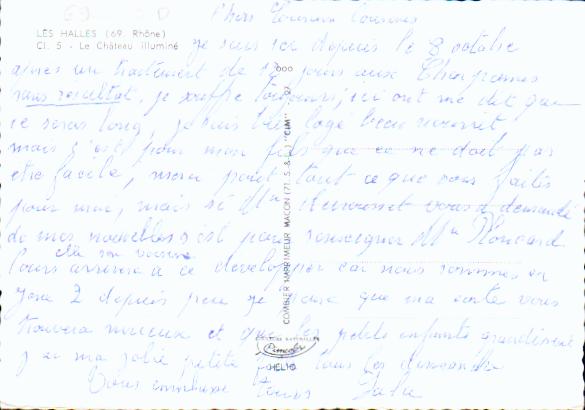 Chers Cousin Cousines
LES HALLES (69. Rhône)
Cl. 5 - Le Château illuminé
je suis ici depuis le 8 octobre
après un traitement de jours aux
sans resultat, je souffre toujours, ici ont me dit que
ce seras long, je suis bien logé bien nourrit
mais c'est pour mon fils que ce ne doit pas
etre facile, merci pour tout ce que vous faites
pour moi, mais si Mme vous a demandé
de mes nouvelles c'est pour renseigner Mme
c'est sa voisine
arrivera a ce developper car nous sommes en
zone 2 depuis peu je pense que ma carte vous
trouvera mieux et que les petits enfants grandissent
j'ai ma jolie petite tous les dimanche
Vous embrasse Tous
COMBIER IMPRIMEUR MACON (71. S.-&-L.) "CIM"
HELIO